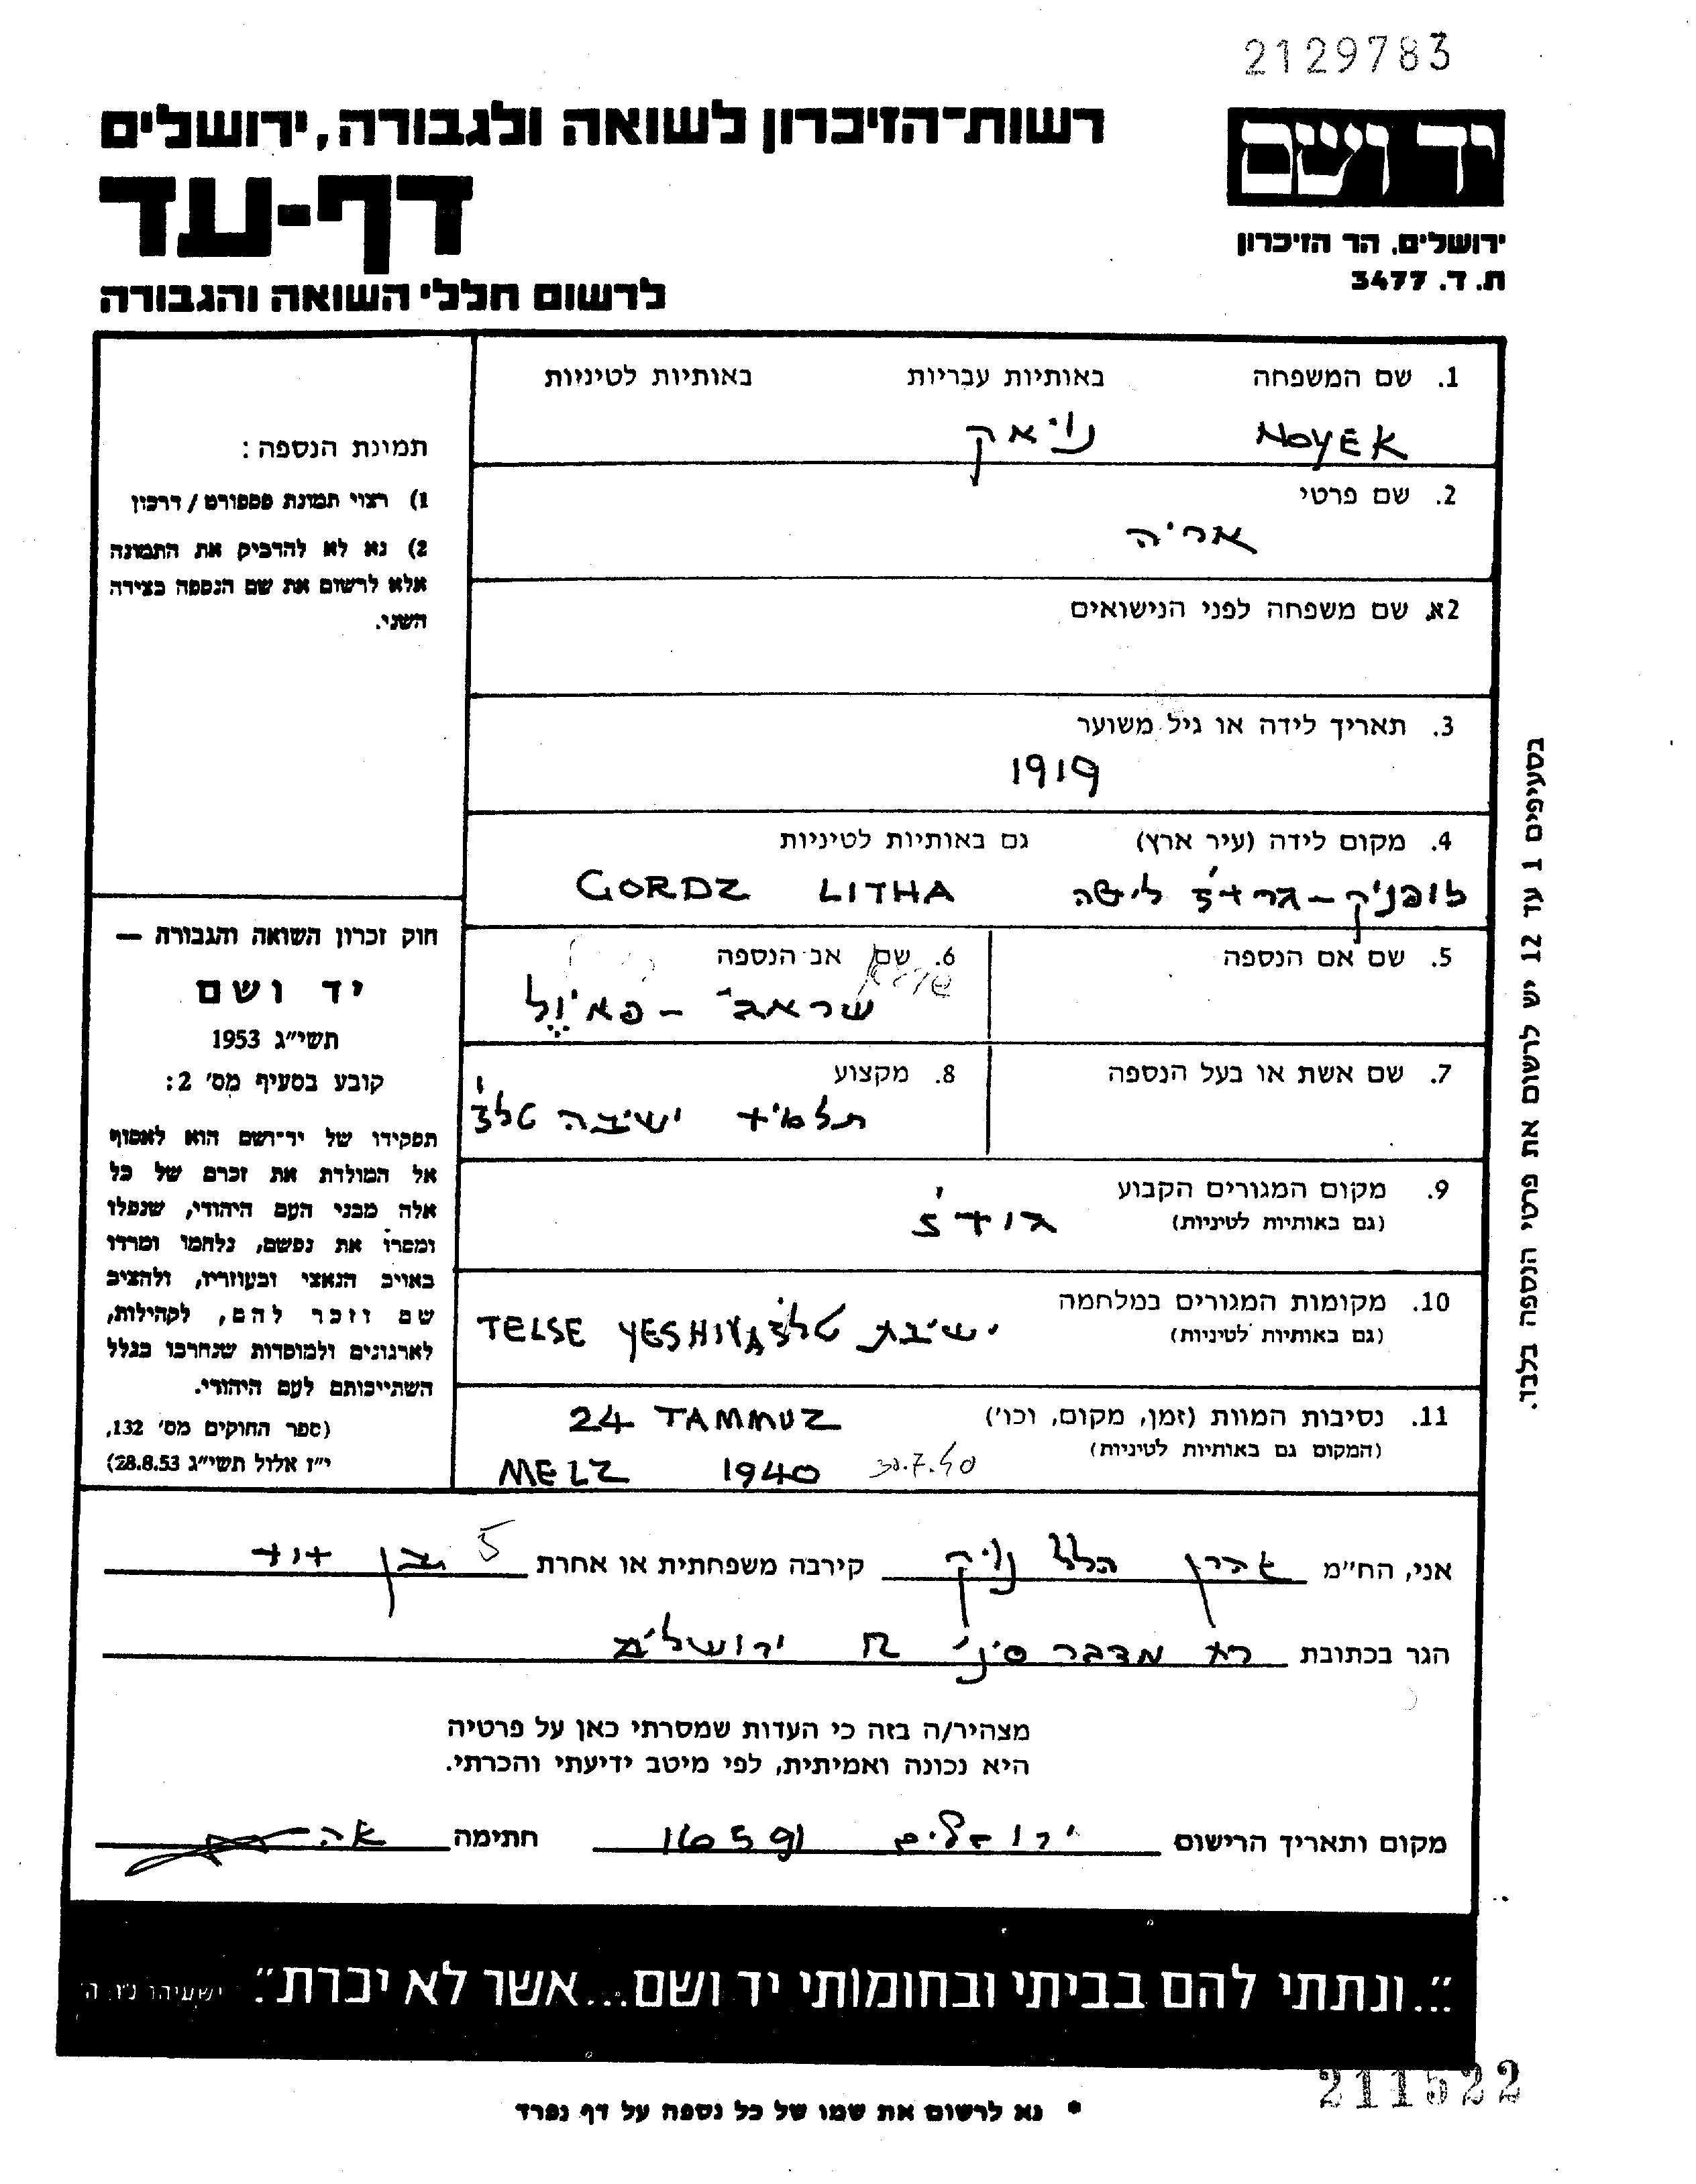 2129783
רשות־הזיכרון לשואה ולגבורה, ירושלים
דף-עד
לרשום חללי השואה והגבורה
יד ושם
ירושלים, הר הזיכרון
ת. ד. 3477
1. שם המשפחה באותיות עבריות באותיות לטיניות
NOYEK נויאק
2. שם פרטי
אריה
2א. שם משפחה לפני הנישואים
3. תאריך לידה או גיל משוער
1919
4. מקום לידה (עיר ארץ) גם באותיות לטיניות
גרדז' ליטה GORDZ LITHA
5. שם אם הנספה
6. שם אב הנספה
שראבי - פאיול
7. שם אשת או בעל הנספה
8. מקצוע
תלמיד ישיבה טלז'
9. מקום המגורים הקבוע
(גם באותיות לטיניות)
גודז'
10. מקומות המגורים במלחמה
(גם באותיות לטיניות)
ישיבת טלז' TELSE YESHIVA
11. נסיבות המוות (זמן, מקום, וכו')
(המקום גם באותיות לטיניות)
24 TAMMUZ
MELZ 1940 30.7.40
תמונת הנספה:
1) רצוי תמונת פספורט / דרכון
2) נא לא להדביק את התמונה
אלא לרשום את שם הנספה בצידה
השני.
חוק זכרון השואה והגבורה —
יד ושם
תשי"ג 1953
קובע בסעיף מס' 2:
תפקידו של יד־ושם הוא לאסוף
אל המולדת את זכרם של כל
אלה מבני העם היהודי, שנפלו
ומסרו את נפשם, נלחמו ומרדו
באויב הנאצי ובעוזריו, ולהציב
שם וזכר להם, לקהילות,
לארגונים ולמוסדות שנחרבו בגלל
השתייכותם לעם היהודי.
(ספר החוקים מס' 132,
י"ז אלול תשי"ג 28.8.53)
בסעיפים 1 עד 12 יש לרשום את פרטי הנספה בלבד.
אני, הח"מ אהרן הלל נויק קירבה משפחתית או אחרת בן דוד
הגר בכתובת מדבר סיני ירושלים
מצהיר/ה בזה כי העדות שמסרתי כאן על פרטיה
היא נכונה ואמיתית, לפי מיטב ידיעתי והכרתי.
מקום ותאריך הרישום ירושלים 16 5 91 חתימה
"...ונתתי להם בביתי ובחומותי יד ושם...אשר לא יכרת". ישעיהו נ"ו, ה'
211522
* נא לרשום את שמו של כל נספה על דף נפרד